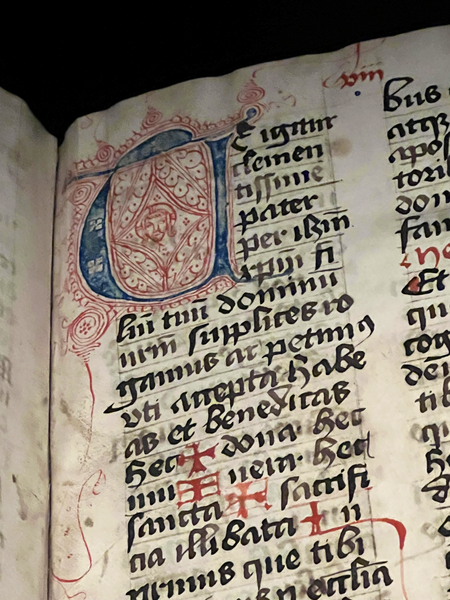 Te igitur
clemen
tissime
pater
per ihm̄
xpm̄ fi
liū tuū dominū
nrm̄ supplices ro
gamus ac petimꝰ
uti accepta habe
as et benedicas
hec ✠ dona hec
mu ✠ nera hec
sancta ✠ sacrifi
cia illibata ✠ in
primis que tibi
ecclīa
bus
atqꝫ
apos
tori
dom
fam
Et
qu
cog
tib
qu